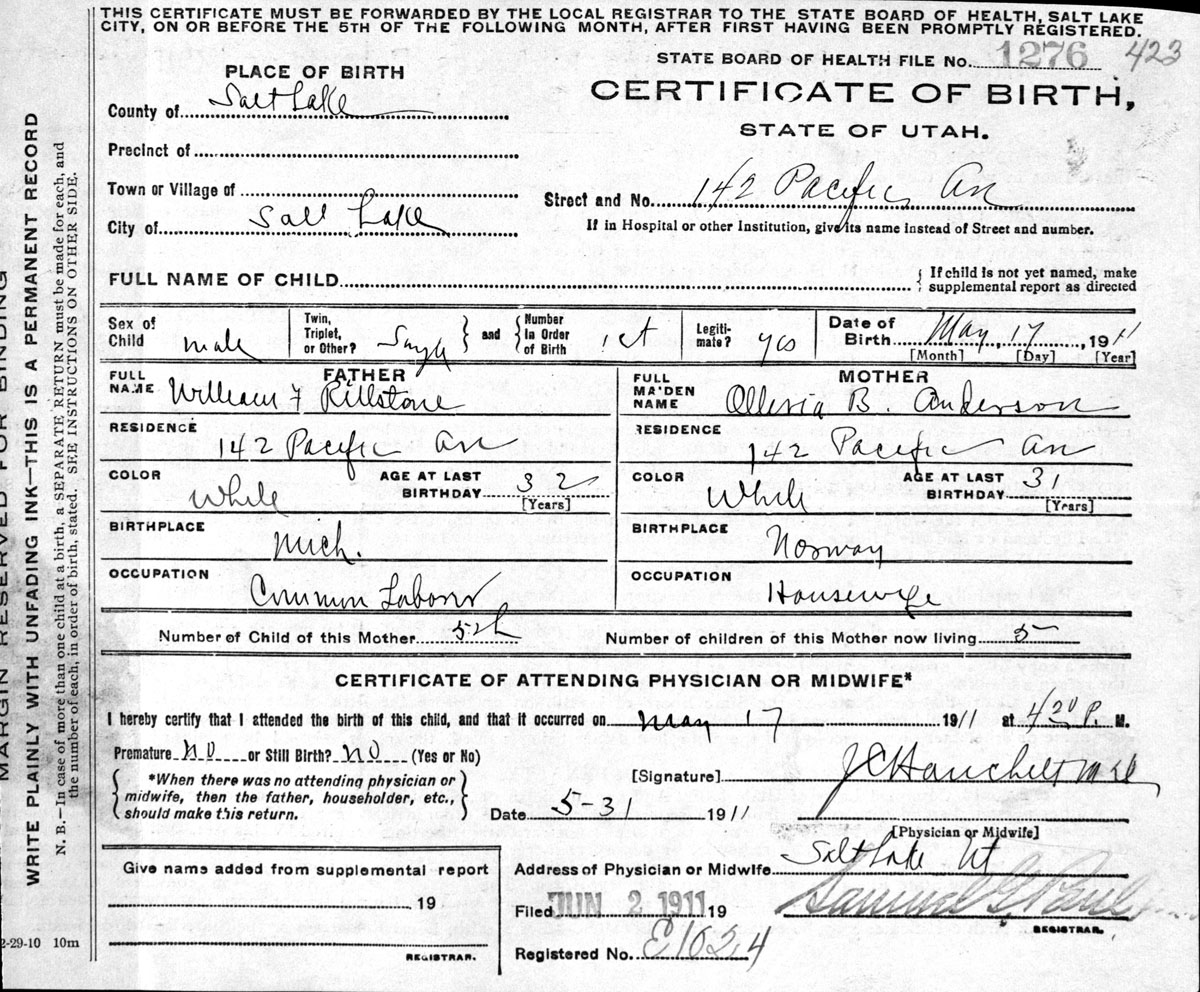 THIS CERTIFICATE MUST BE FORWARDED BY THE LOCAL REGISTRAR TO THE STATE BOARD OF HEALTH, SALT LAKE
CITY, ON OR BEFORE THE 5TH OF THE FOLLOWING MONTH, AFTER FIRST HAVING BEEN PROMPTLY REGISTERED.
STATE BOARD OF HEALTH FILE No. 1276 423
PLACE OF BIRTH
CERTIFICATE OF BIRTH,
STATE OF UTAH.
County of Salt Lake
Precinct of
Town or Village of
City of Salt Lake
Street and No. 142 Pacific Av
If in Hospital or other Institution, give its name instead of Street and number.
FULL NAME OF CHILD
If child is not yet named, make
supplemental report as directed
Sex of Child male
Twin, Triplet, or Other? Single and Number in Order of Birth 1st
Legiti-mate? yes
Date of Birth May 17 1911
[Month] [Day] [Year]
FATHER
FULL NAME William F Rillstone
RESIDENCE 142 Pacific Av
COLOR White AGE AT LAST BIRTHDAY 32 [Years]
BIRTHPLACE Mich.
OCCUPATION Common Labor
MOTHER
FULL MAIDEN NAME B. Anderson
RESIDENCE 142 Pacific Av
COLOR White AGE AT LAST BIRTHDAY 31 [Years]
BIRTHPLACE Norway
OCCUPATION Housewife
Number of Child of this Mother 5th Number of children of this Mother now living 5
CERTIFICATE OF ATTENDING PHYSICIAN OR MIDWIFE*
I hereby certify that I attended the birth of this child, and that it occurred on May 17 1911 at 4 20 P. M.
Premature no or Still Birth? no (Yes or No)
*When there was no attending physician or
midwife, then the father, householder, etc.,
should make this return.
[Signature] M D
Date 5-31 1911
[Physician or Midwife]
Give name added from supplemental report
19
REGISTRAR.
Address of Physician or Midwife Salt Lake Ut
Filed JUN 2 1911 19 Samuel G. Paul
REGISTRAR.
Registered No. E1024
MARGIN RESERVED FOR BINDING
WRITE PLAINLY WITH UNFADING INK—THIS IS A PERMANENT RECORD
N. B.—In case of more than one child at a birth, a SEPARATE RETURN must be made for each, and
the number of each, in order of birth, stated. SEE INSTRUCTIONS ON OTHER SIDE.
2-29-10 10m